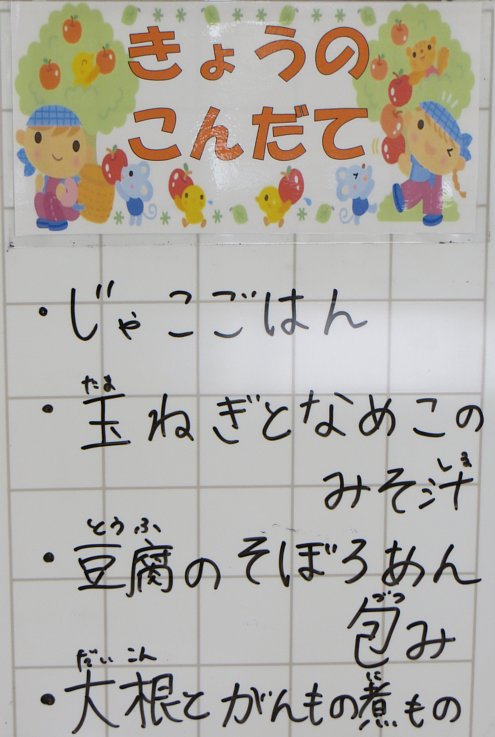 きょうの
こんだて
・じゃこごはん
たま
・玉ねぎとなめこの
しる
みそ汁
とうふ
・豆腐のそぼろあん
づつ
包み
だいこん に
・大根とがんもの煮もの